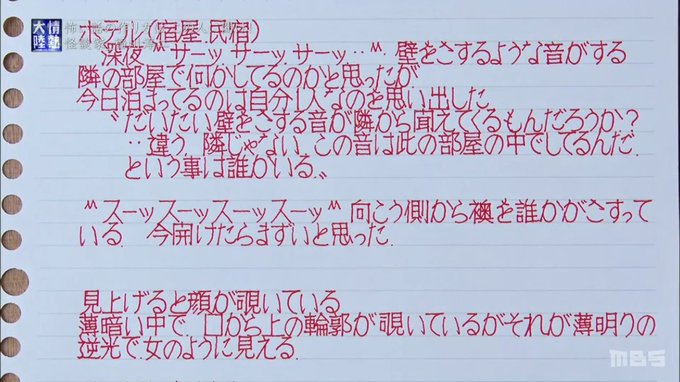 情熱大陸
ホテル(宿屋.民宿)
深夜〝サーッ.サーッ.サーッ‥〟壁をこするような音がする
隣の部屋で何かしてるのかと思ったが
今日泊まってるのは自分1人なのを思い出した.
〝だいたい壁をこする音が隣から聞えてくるもんだろうか?
‥違う.隣じゃない.この音は此の部屋の中でしてるんだ.
という事は誰がいる.〟
〝スーッスーッスーッスーッ〟向こう側から襖を誰かがこすって
いる. 今開けたらまずいと思った.
見上げると顔が覗いている
薄暗い中で.口から上の輪郭が覗いているがそれが薄明りの
逆光で.女のように見える.
MBS